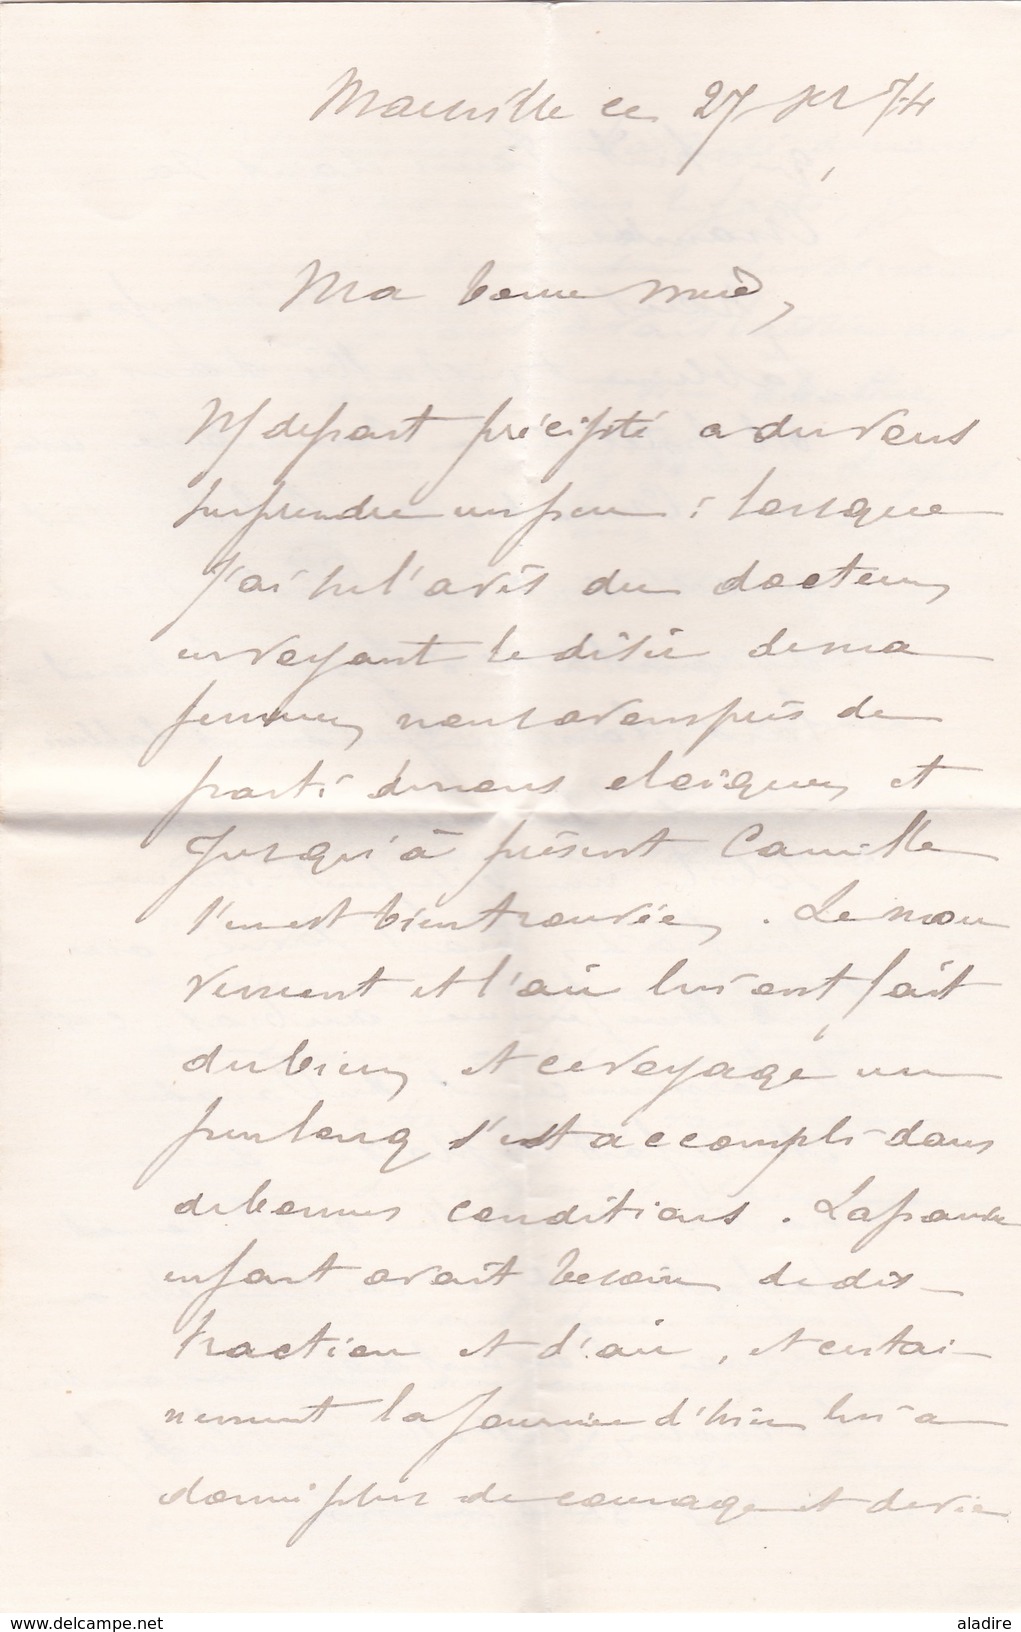 Marseille ce 27 74
Ma bonne mère,
départ précipité a du vous
surprendre un peu : lorsque
j'ai su l'avis du docteur,
en voyant le désir de ma
femme, nous avons pris de
parti de nous eloigner, et
jusqu'à présent Camille
s'en est bien trouvée, . Le mou
vement et l'air lui ont fait
du bien, et ce voyage un
peu long s'est accompli dans
de bonnes conditions. La pauvre
enfant avait besoin de dis-
traction et d'air, et certai-
nement la journée d'hier lui a
donné plus de courage et de vie
delcampe.net
aladire